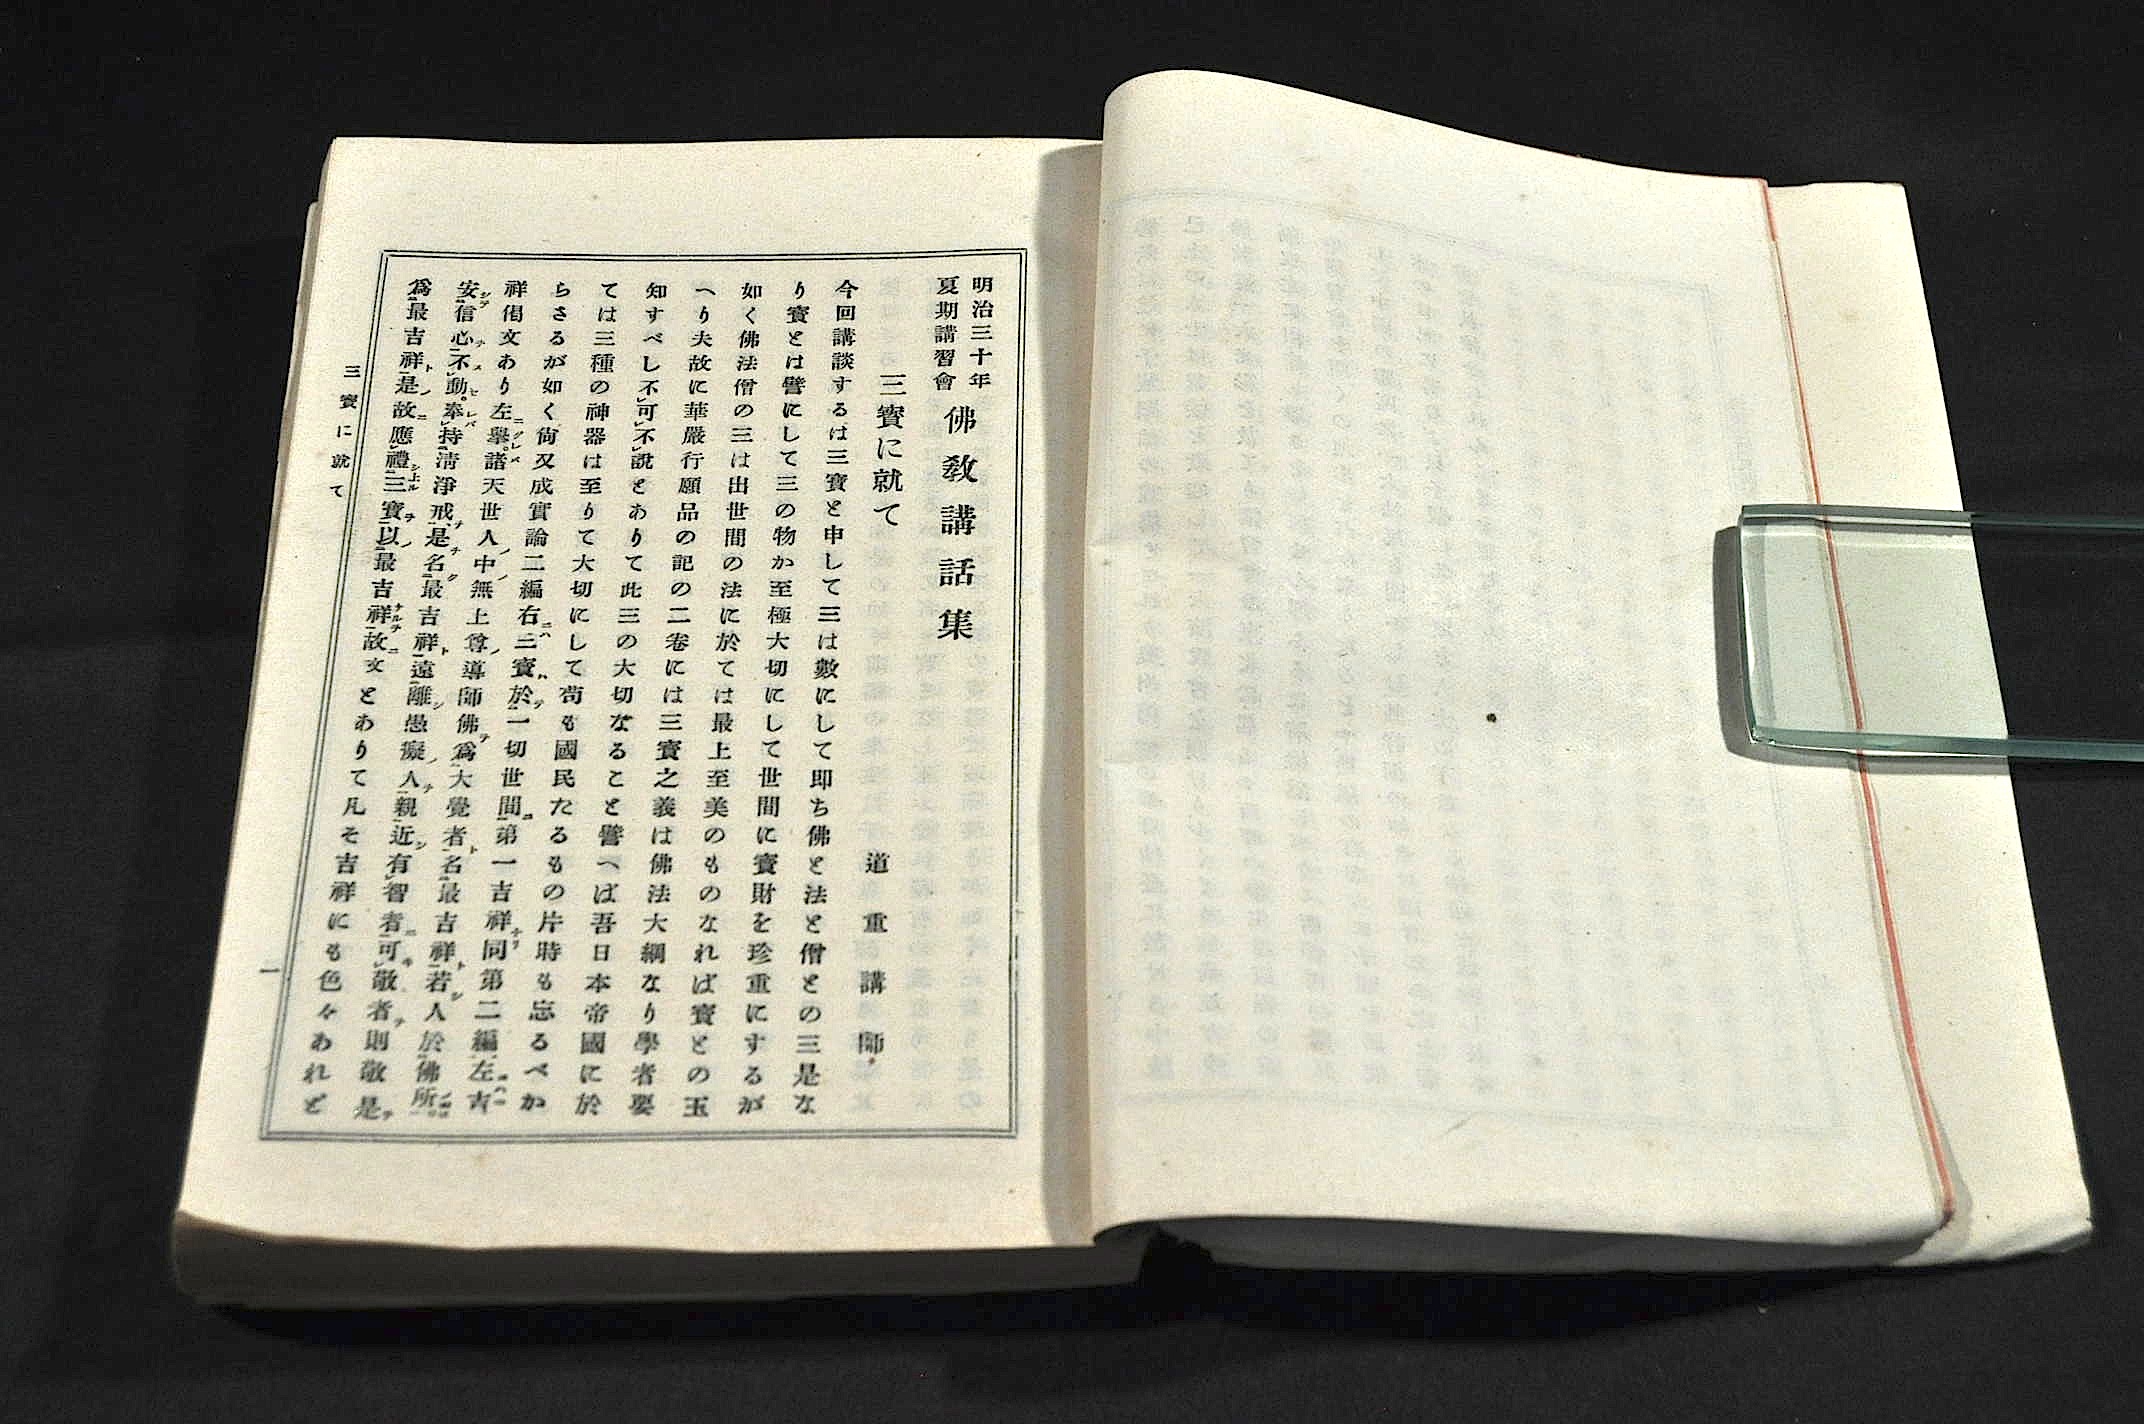 明治三十年
夏期講習會
佛教講話集
三寶に就て
道重講師
今回講談するは三寶と申して三は數にして即ち佛と法と僧との三是な
り寶とは譬にして三の物か至極大切にして世間に寶財を珍重にするが
如く佛法僧の三は出世間の法に於ては最上至美のものなれば寶との玉
へり夫故に華嚴行願品の記の二卷には三寶之義は佛法大綱なり學者要
知すべし不可不說とありて此三の大切なること譬へば吾日本帝國に於
ては三種の神器は至りて大切にして苟も國民たるもの片時も忘るべか
らさるが如く尙又成實論二編右三寶於一切世間第一吉祥同第二編左吉
祥偈文あり左擧諸天世人中無上尊導師佛爲大覺者名最吉祥若人於佛所
安信心不動奉持淸淨戒是名最吉祥遠離愚癡人親近有智者可敬者則敬是
爲最吉祥是故應禮三寶以最吉祥故文とありて凡そ吉祥にも色々あれど
三寶に就て
一